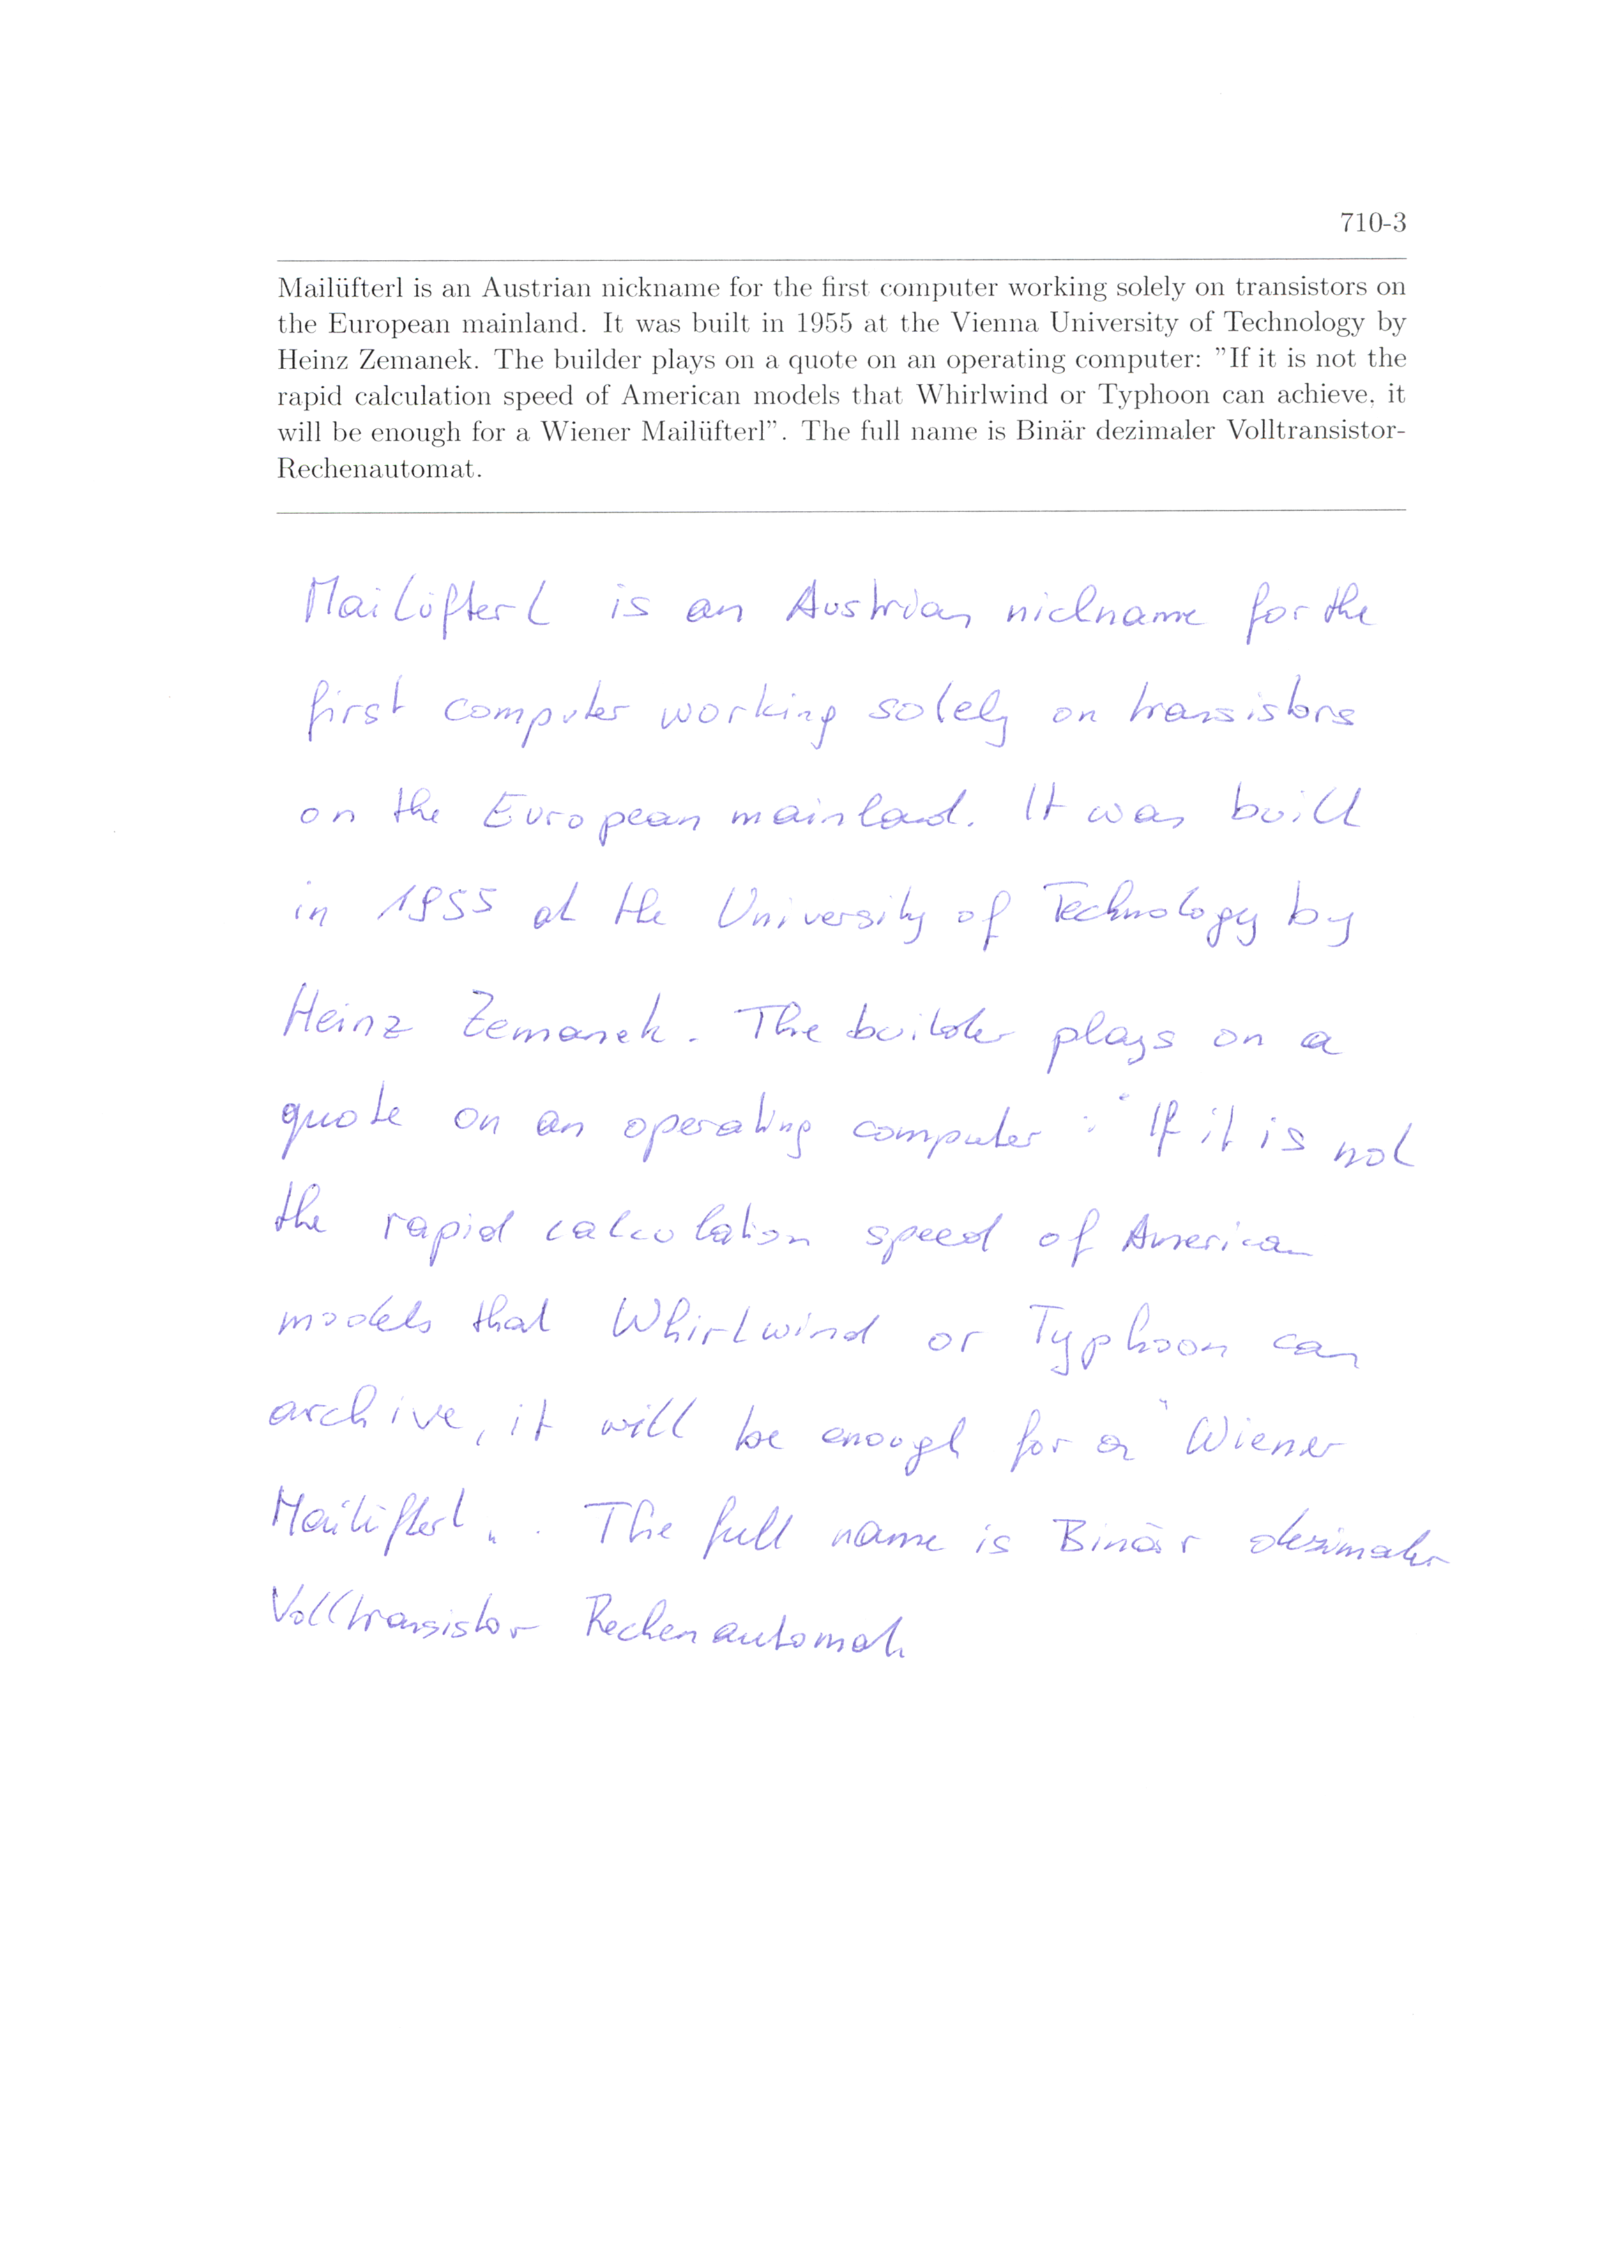 710-3
Mailüfterl is an Austrian nickname for the first computer working solely on transistors on
the European mainland. It was built in 1955 at the Vienna University of Technology by
Heinz Zemanek. The builder plays on a quote on an operating computer: ”If it is not the
rapid calculation speed of American models that Whirlwind or Typhoon can achieve, it
will be enough for a Wiener Mailüfterl”. The full name is Binär dezimaler Volltransistor-
Rechenautomat.
Mailüfterl is an Austrian nickname for the
first computer working solely on transistors
on the European mainland. It was built
in 1955 at the University of Technology by
Heinz Zemanek. The builder plays on a
quote on an operating computer : "If it is not
the rapid calculation speed of American
models that Whirlwind or Typhoon can
archive, it will be enough for a "Wiener
Mailüfterl„. The full name is Binär dezimaler
Volltransistor Rechenautomat.